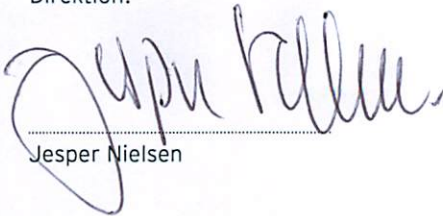 Direktion:
Jesper Nielsen